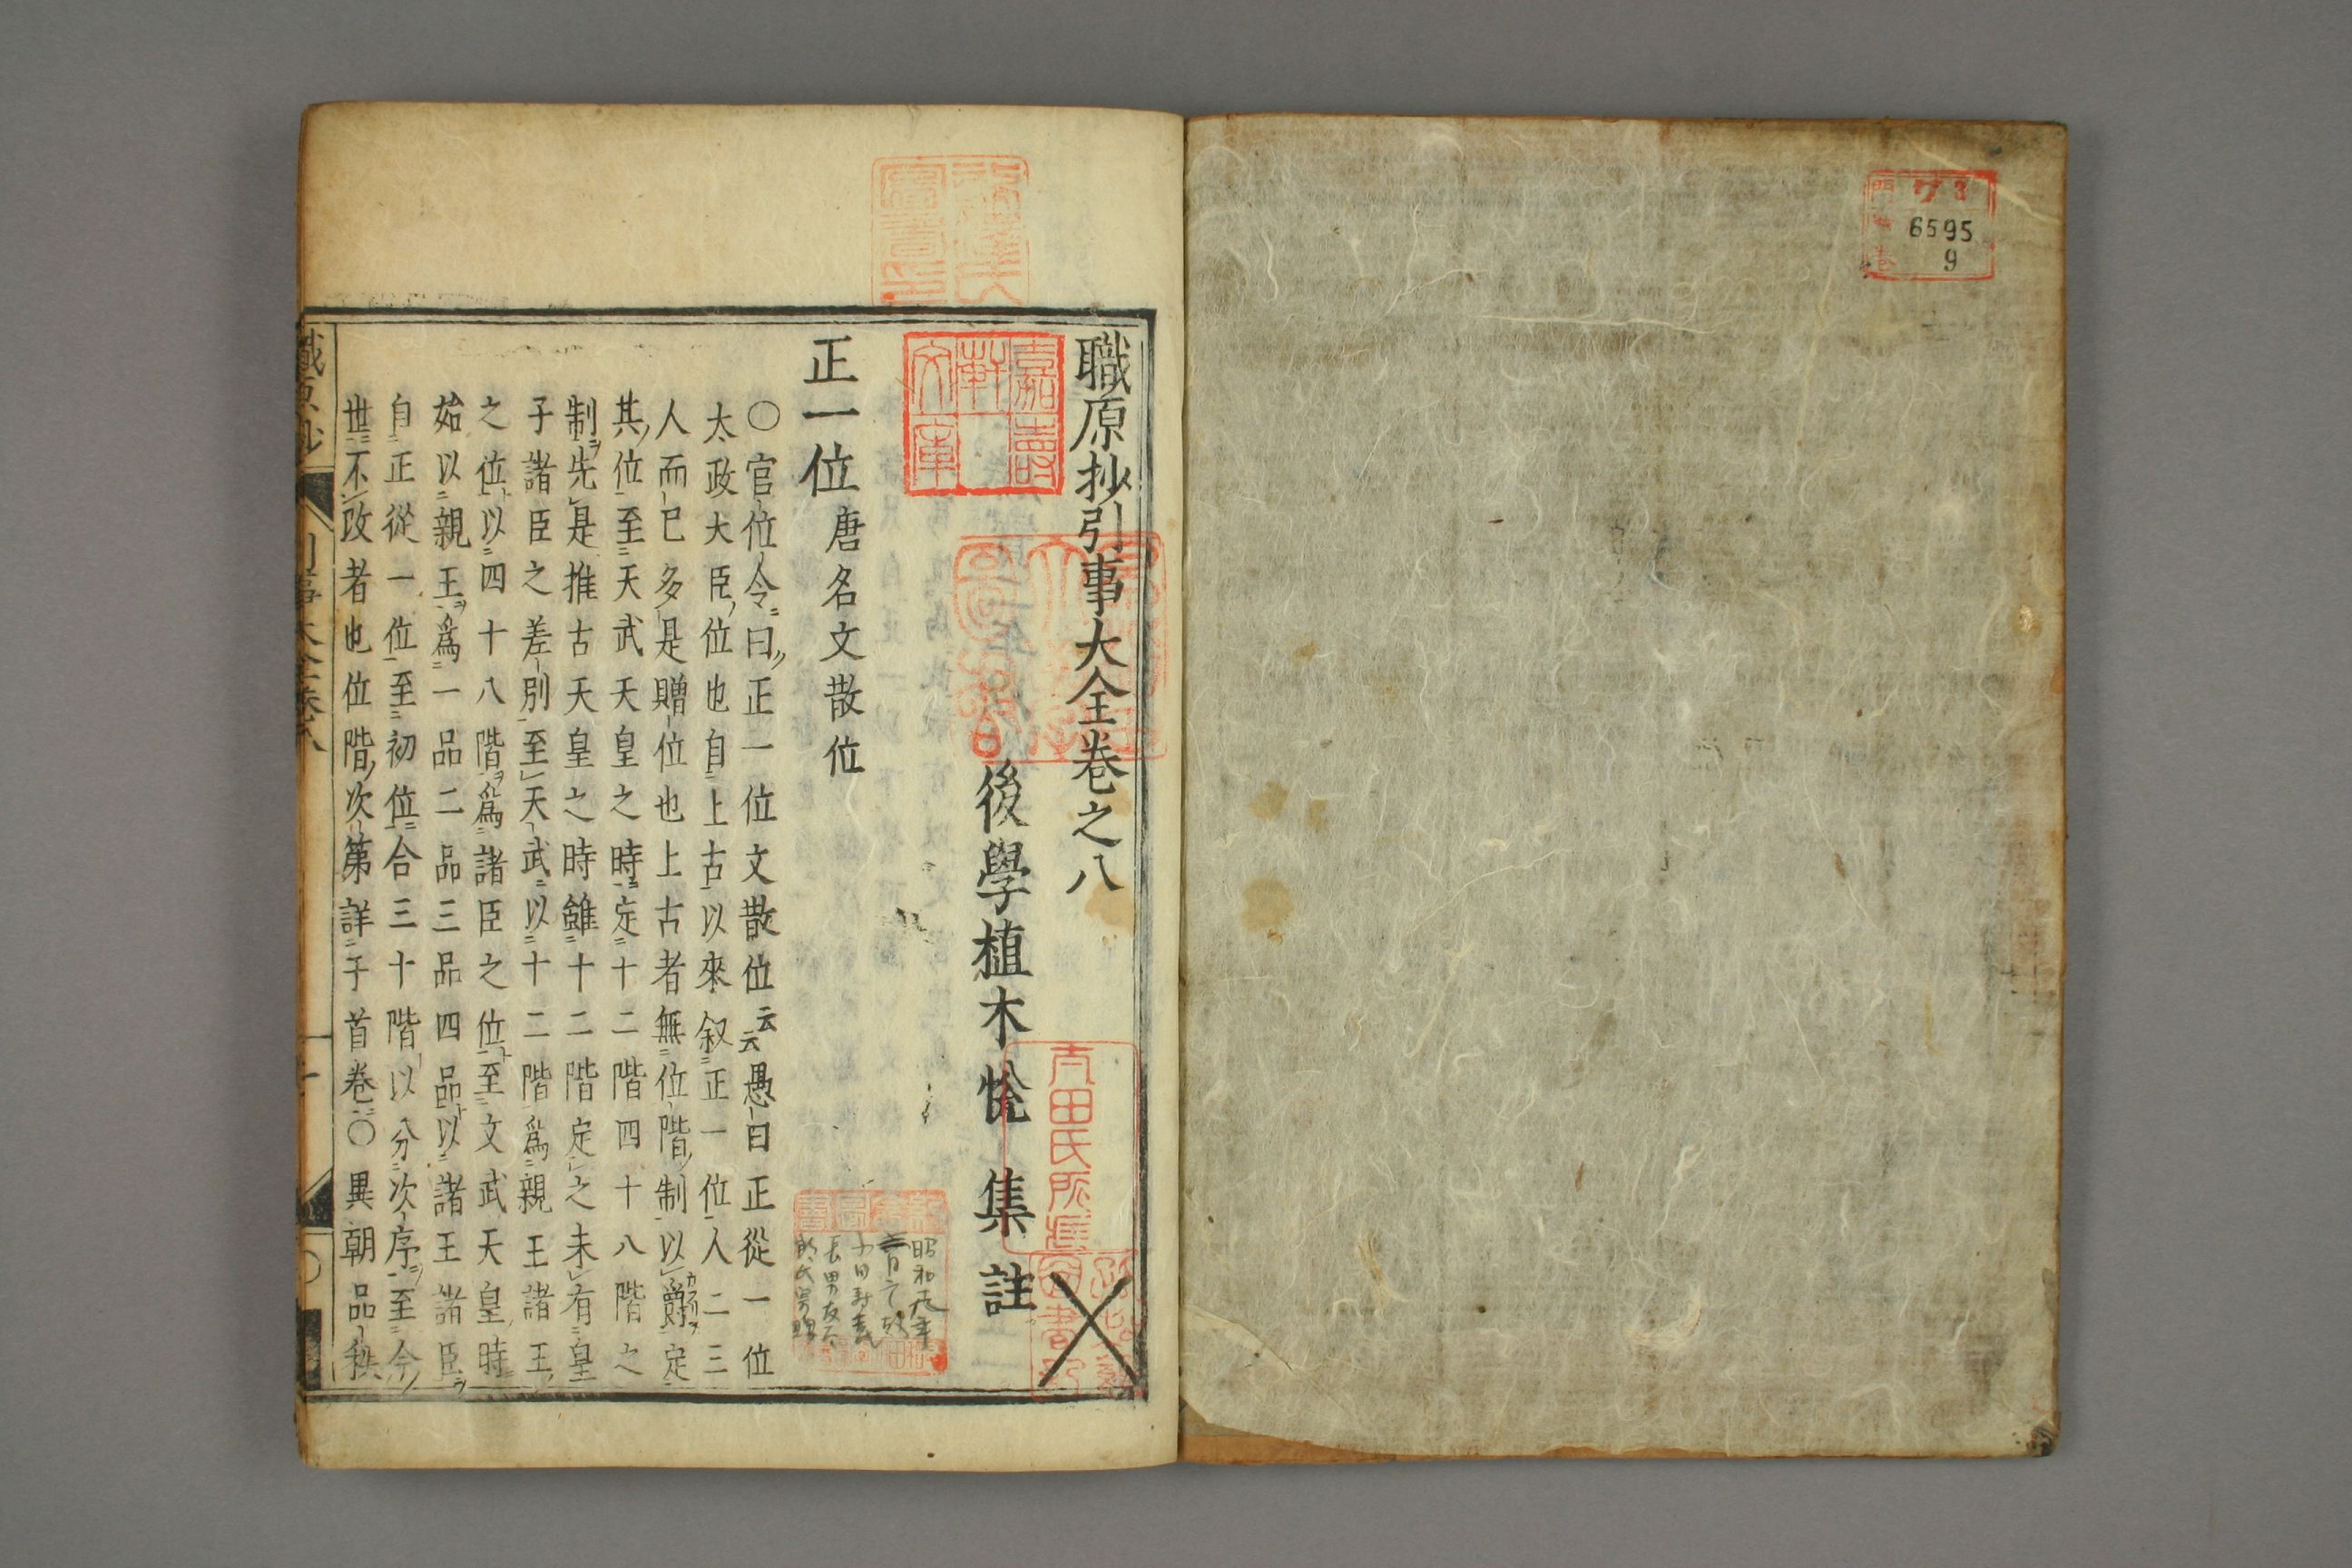 ワ3
6595
9
職原抄引事大全卷之八
嘉壽軒文庫
後學植木悦 集註
太田氏所藏
正一位唐名文散位
○官位令曰正一位文散位云云愚曰正從一位
太政大臣位也自上古以來叙正一位人二三
人而已多是贈位也上古者無位階制以爵定
其位至天武天皇之時定十二階四十八階之
制先是推古天皇之時雖十二階定之未有皇
子諸臣之差別至天武以十二階爲親王諸王
之位以四十八階爲諸臣之位至文武天皇時
始以親王爲一品二品三品四品以諸王諸臣
自正從一位至初位合三十階以分次序至今
世不改者也位階次第詳于首卷○異朝品秩